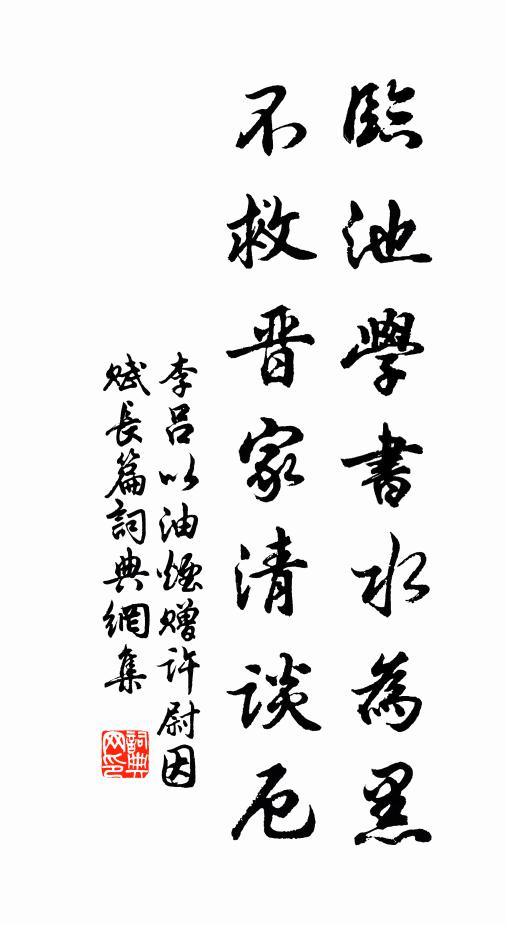 臨池學書水為黑
不救晉家清談厄
李呂以油煙贈許尉因
賦長篇詞典網集
詞典網印